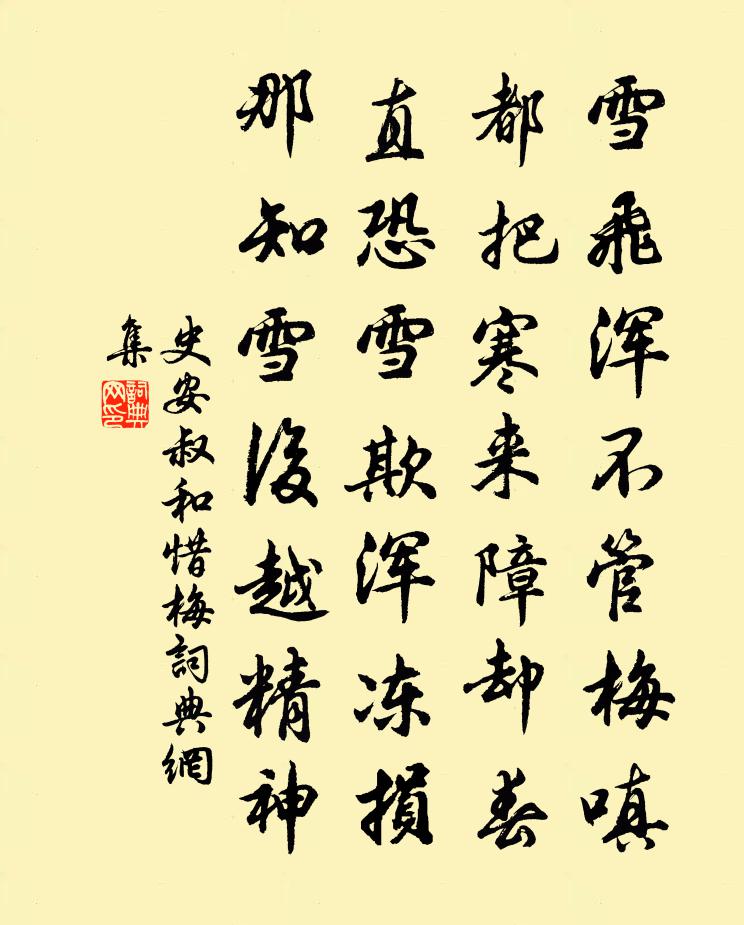 雪飛浑不管梅嗔
都把寒来障却春
直恐雪欺浑冻損
那知雪後越精神
史安叔和惜梅詞典網
集
詞典
网印